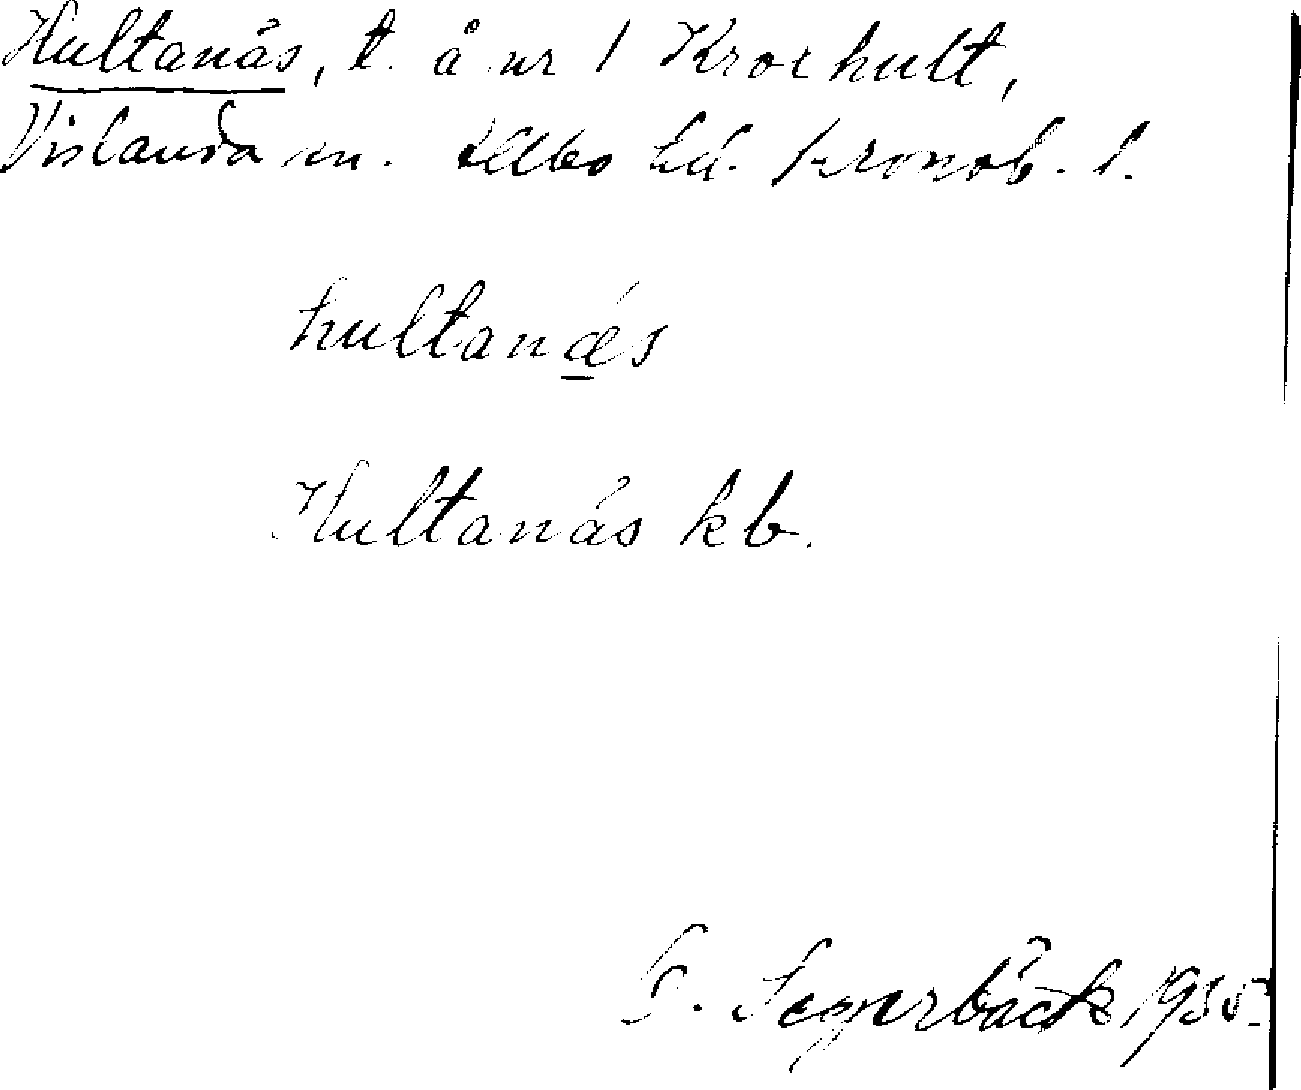 Hultanäs, t. å nr 1 Krochult,
Vislanda sn. Allbo hd. Kronob. l.
hultanǽs
Hultanäs kb.
G. Segerbäck 1935.